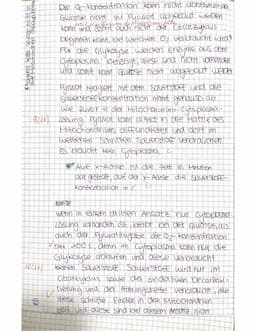 Die O₂-Konzentration kann nicht abnehmen
Glucose nicht zu Pyruvat abgebaut werden
kann und somit auch nicht der Citratzyklus
beginnen kann, bei welchem O₂ verbraucht wird.
Für die Glykolyse werden Enzyme aus dem
Cytoplasma benötigt, diese sind nicht vorhanden
und somit kann Glucose nicht abgebaut werden
Pyruvat reagiert mit dem Sauerstoff und die
Sauerstoffkonzentration nimmt genauso ab
wie zuvor in der Mitochondrien-Cytoplasma-
Lösung. Pyruvat kann direkt in die Matrix des
Mitochondriums diffundieren und dort im
weiteren Schritten Sauerstoff verbrauchen
Es braucht kein Cytoplasma.
Auf x-Achse ist die Zeit in Minuten
dargestellt, auf der y-Achse die Sauerstoff-
konzentration in %
Wenn in einem dritten Ansatz nur Cytoplasma-
Lösung vorhanden ist, bleibt bei der Glucose als
auch der Pyruvatzugabe die O₂-Konzentration
bei 100%, denn im Cytoplasma kann nur die
Glykolyse ablaufen und diese verbraucht
keinen Sauerstoff. Sauerstoff wird nur im
Citratzyklus sowie der oxidativen Decarboxy-
lierung und der Atmungskette verbraucht, alle
diese Schritte finden in den Mitochondrien
statt und diese sind bei diesem Ansatz nicht